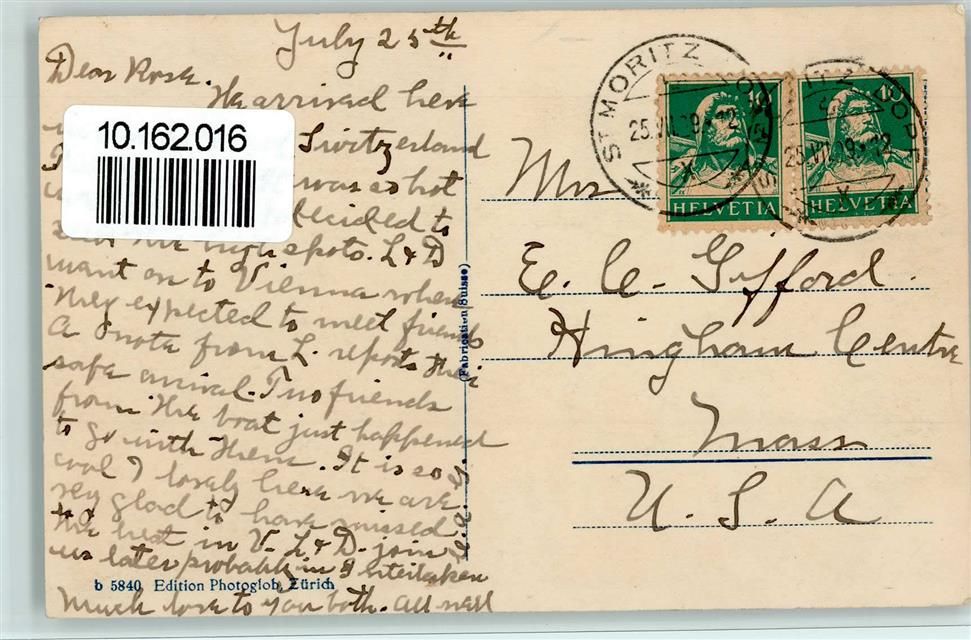 July 25th
Dear Rose.
We arrived here
Switzerland
was so hot
decided to
the high spots. L & D
went on to Vienna where
they expected to meet friends
A note from L. reports their
safe arrival. Two friends
from the boat just happened
to go with them. It is so
cool & lovely here we are
very glad to have missed
the heat in V. L & D. join
us later probably in Interlaken
Much love to you both. All well
10.162.016
b 5840 Edition Photoglob, Zürich
(Fabrication Suisse)
ST MORITZ
25.VII.29
HELVETIA
10
HELVETIA
Mrs
E. C. Gifford.
Hingham Centre
Mass
U. S. A